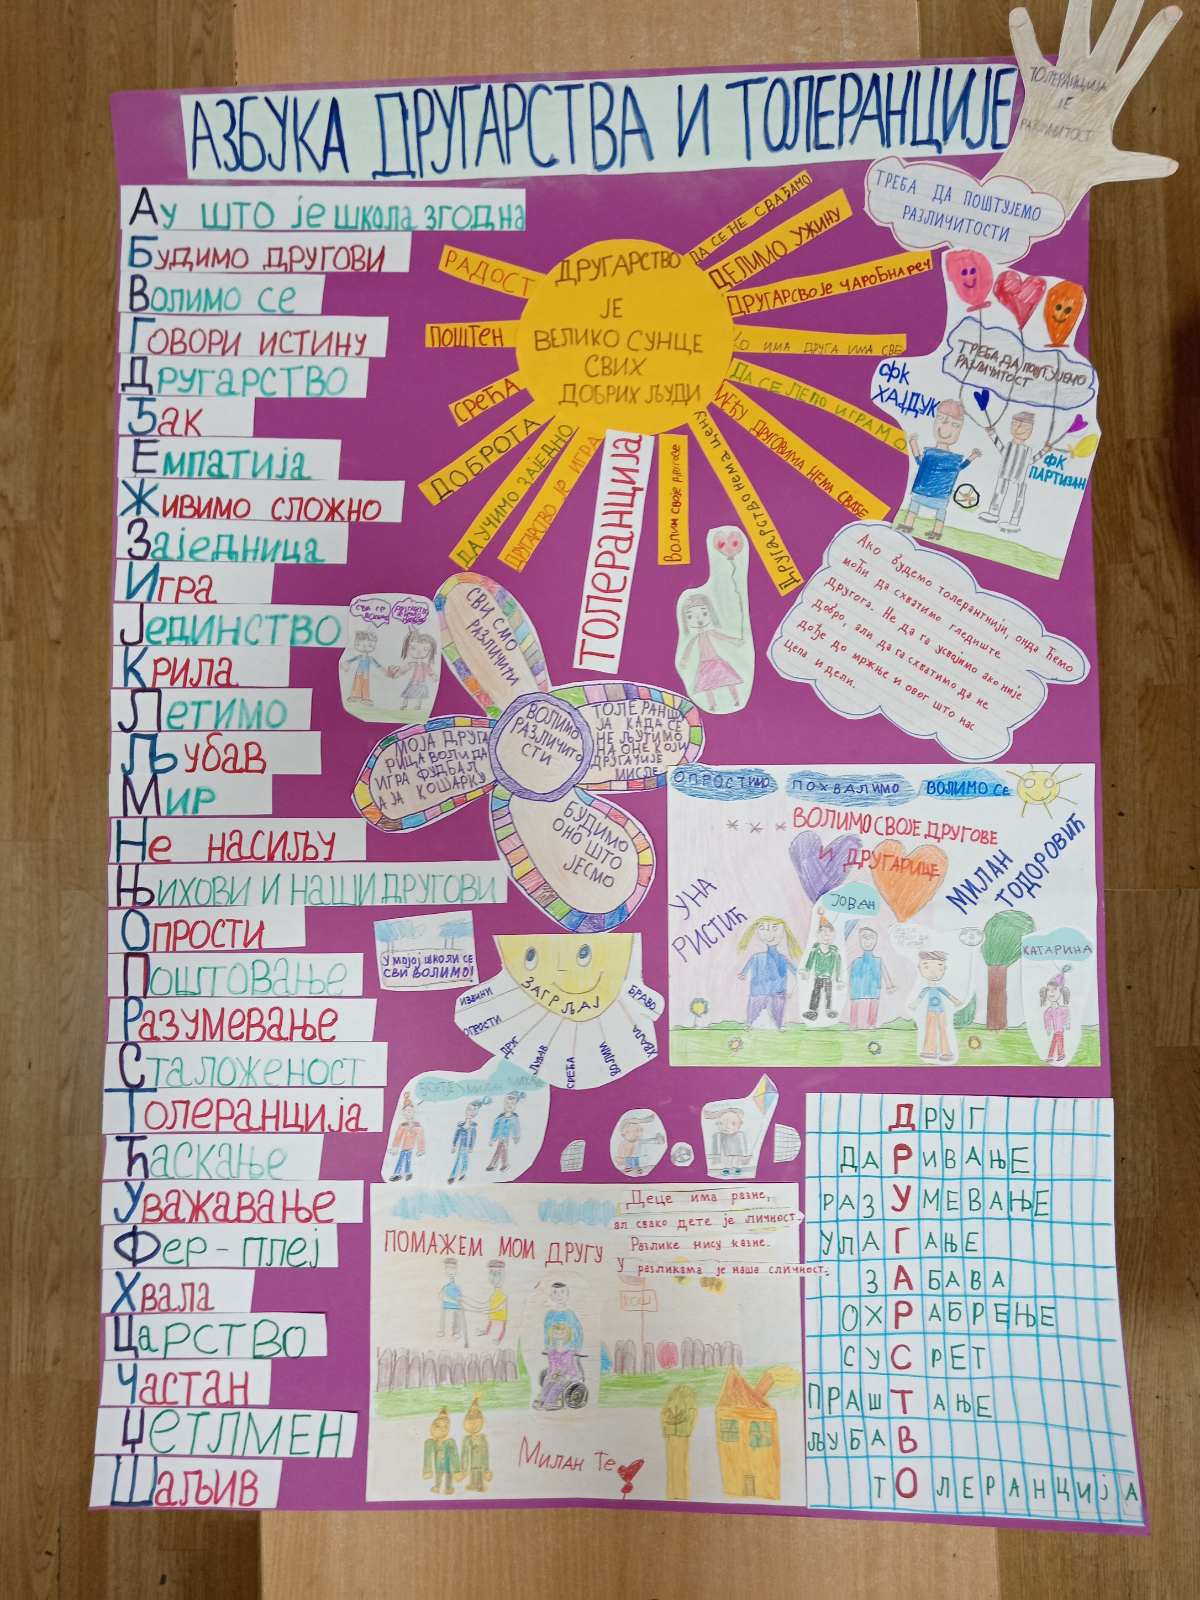 АЗБУКА ДРУГАРСТВА И ТОЛЕРАНЦИЈЕ
ТОЛЕРАНЦИЈА
ЈЕ
РАЗЛИЧИТОСТ
ТРЕБА ДА ПОШТУЈЕМО
РАЗЛИЧИТОСТИ
Ау што је школа згодна
Будимо другови
Волимо се
Говори истину
Другарство
Ђак
Емпатија
Живимо сложно
Заједница
Игра
Јединство
Крила
Летимо
Љубав
Мир
Не насиљу
Њихови и наши другови
Опрости
Поштовање
Разумевање
Сталоженост
Толеранција
Ћаскање
Уважавање
Фер-плеј
Хвала
Царство
Частан
Џетлмен
Шаљив
ДРУГАРСТВО
ЈЕ
ВЕЛИКО СУНЦЕ
СВИХ
ДОБРИХ ЉУДИ
РАДОСТ
ПОШТЕН
СРЕЋА
ДОБРОТА
ДА УЧИМО ЗАЈЕДНО
ДРУГАРСТВО ЈЕ ИГРА
ТОЛЕРАНЦИЈА
ВОЛИМ СВОЈЕ ДРУГОВЕ
ДРУГАРСТВО НЕМА ЦЕНУ
МЕЂУ ДРУГОВИМА НЕМА СВАЂЕ
ДА СЕ ЛЕПО ИГРАМО
КО ИМА ДРУГА ИМА СВЕ
ДРУГАРСВО ЈЕ ЧАРОБНА РЕЧ
ДЕЛИМО УЖИНУ
ДА СЕ НЕ СВАЂАМО
ТРЕБА ДА ПОШТУЈЕМО
РАЗЛИЧИТОСТ
ФК
ХАЈДУК
ФК
ПАРТИЗАН
Ако будемо толерантнији, онда ћемо
моћи да схватимо гледиште
другога. Не да га усвајамо ако није
добро, али да га схватимо да не
дође до мржње и овог што нас
цепа и дели.
СВИ СМО
РАЗЛИЧИТИ
ВОЛИМО
РАЗЛИЧИТО
СТИ
ТОЛЕРАНЦИ
ЈА КАДА СЕ
НЕ ЉУТИМО
НА ОНЕ КОЈИ
ДРУГАЧИЈЕ
МИСЛЕ
МОЈА ДРУГА
РИЦА ВОЛИ ДА
ИГРА ФУДБАЛ
А ЈА КОШАРКУ
БУДИМО
ОНО ШТО
ЈЕСМО
ОПРОСТИМО
ПОХВАЛИМО
ВОЛИМО СЕ
ВОЛИМО СВОЈЕ ДРУГОВЕ
И ДРУГАРИЦЕ
УНА
РИСТИЋ
МИЛАН
ТОДОРОВИЋ
ЈОВАН
КАТАРИНА
У МОЈОЈ ШКОЛИ СЕ
СВИ ВОЛИМО!
ЗАГРЉАЈ
ИЗВИНИ
ОПРОСТИ
ДРУГ
ЉУБАВ
СРЕЋА
ВОЛИМ
ХВАЛА
БРАВО
ПОМАЖЕМ МОМ ДРУГУ
Деце има разне,
ал свако дете је личност.
Разлике нису казне.
У разликама је наша сличност.
КОШ
МИЛАН ТЕ
ДРУГ
ДАРИВАЊЕ
РАЗУМЕВАЊЕ
УЛАГАЊЕ
ЗАБАВА
ОХРАБРЕЊЕ
СУСРЕТ
ПРАШТАЊЕ
ЉУБАВ
ТОЛЕРАНЦИЈА